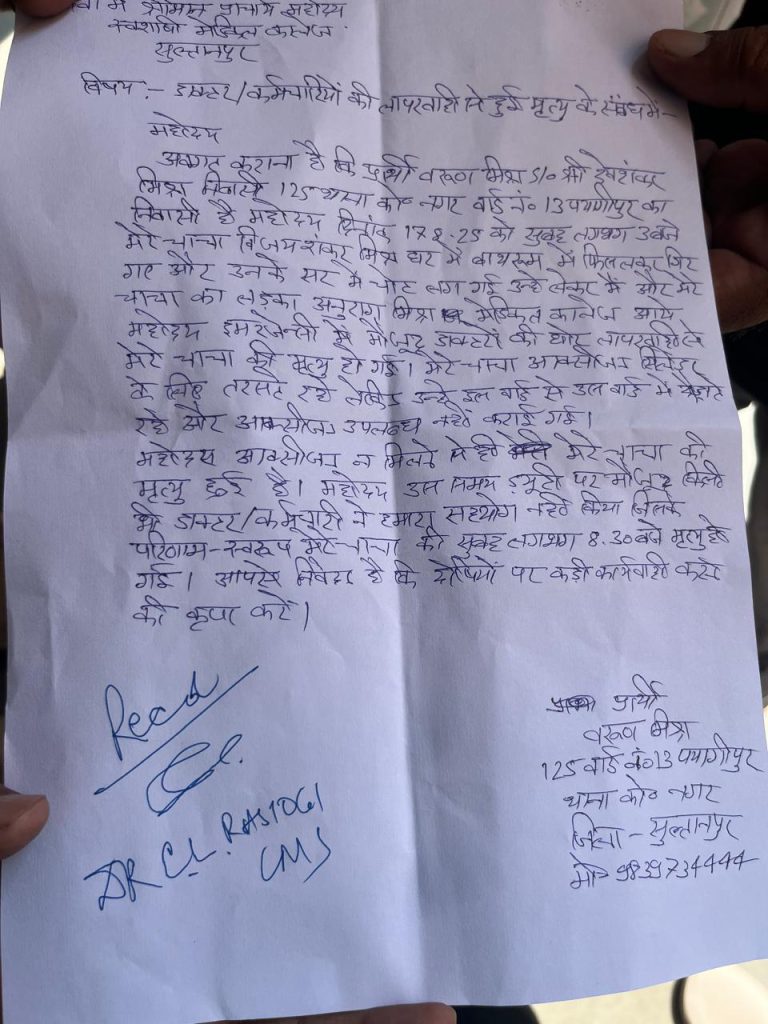 सेवा में श्रीमान प्राचार्य महोदय
स्वशासी मेडिकल कालेज
सुल्तानपुर
विषय :- डाक्टर/कर्मचारियों की लापरवाही से हुई मृत्यु के संबंध में-
महोदय
अवगत कराना है कि प्रार्थी वरूण मिश्र S/० श्री
मिश्र निवासी 125 थाना को० नगर वार्ड नं० 13 पयागीपुर का
निवासी है महोदय दिनांक 17.8.25 को सुबह लगभग 3 बजे
मेरे चाचा विजय शंकर मिश्र घर में बाथरूम में फिसलकर गिर
गए और उनके सर में चोट लग गई उन्हे लेकर मै और मेरे
चाचा का लड़का अनुराग मिश्र मेडिकल कालेज आये
महोदय इमरजेन्सी में मौजूद डाक्टरों की घोर लापरवाही से
मेरे चाचा की मृत्यु हो गई। मेरे चाचा आक्सीजन सिलेंडर
के लिए तरसते रहे लेकिन उन्हे इस वार्ड से उस वार्ड में दौड़ाते
रहे और आक्सीजन उपलब्ध नही कराई गई।
महोदय आक्सीजन न मिलने से ही मेरे चाचा की
मृत्यु हुई है। महोदय उस समय ड्यूटी पर मौजूद किसी
भी डाक्टर/कर्मचारी ने हमारा सहयोग नही किया जिसके
परिणाम-स्वरूप मेरे चाचा की सुबह लगभग 8.30 बजे मृत्यु हो
गई। आपसे निवेदन है कि दोषियों पर कड़ी कार्यवाही करने
की कृपा करें।
प्रार्थी
वरूण मिश्रा
125 वार्ड नं०13 पयागीपुर
थाना को० नगर
जिला - सुल्तानपुर
मो० 9839734444
Recd
DR C.L. RASTOGI
CMS